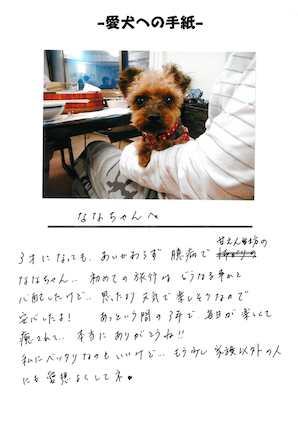 -愛犬への手紙-
ななちゃんへ
甘えん坊の
3才になっても、あいかわらず 臆病で
ななちゃん.. 初めての旅行は どうなる事かと
心配したけど.. 思ったより 元気で楽しそうなので
安心したよ! あっという間の3年で、毎日が楽しくて
癒されて.. 本当に ありがとうね!!
私にベッタリなのもいいけど… もう少し 家族以外の人
にも 愛想よくしてネ♥